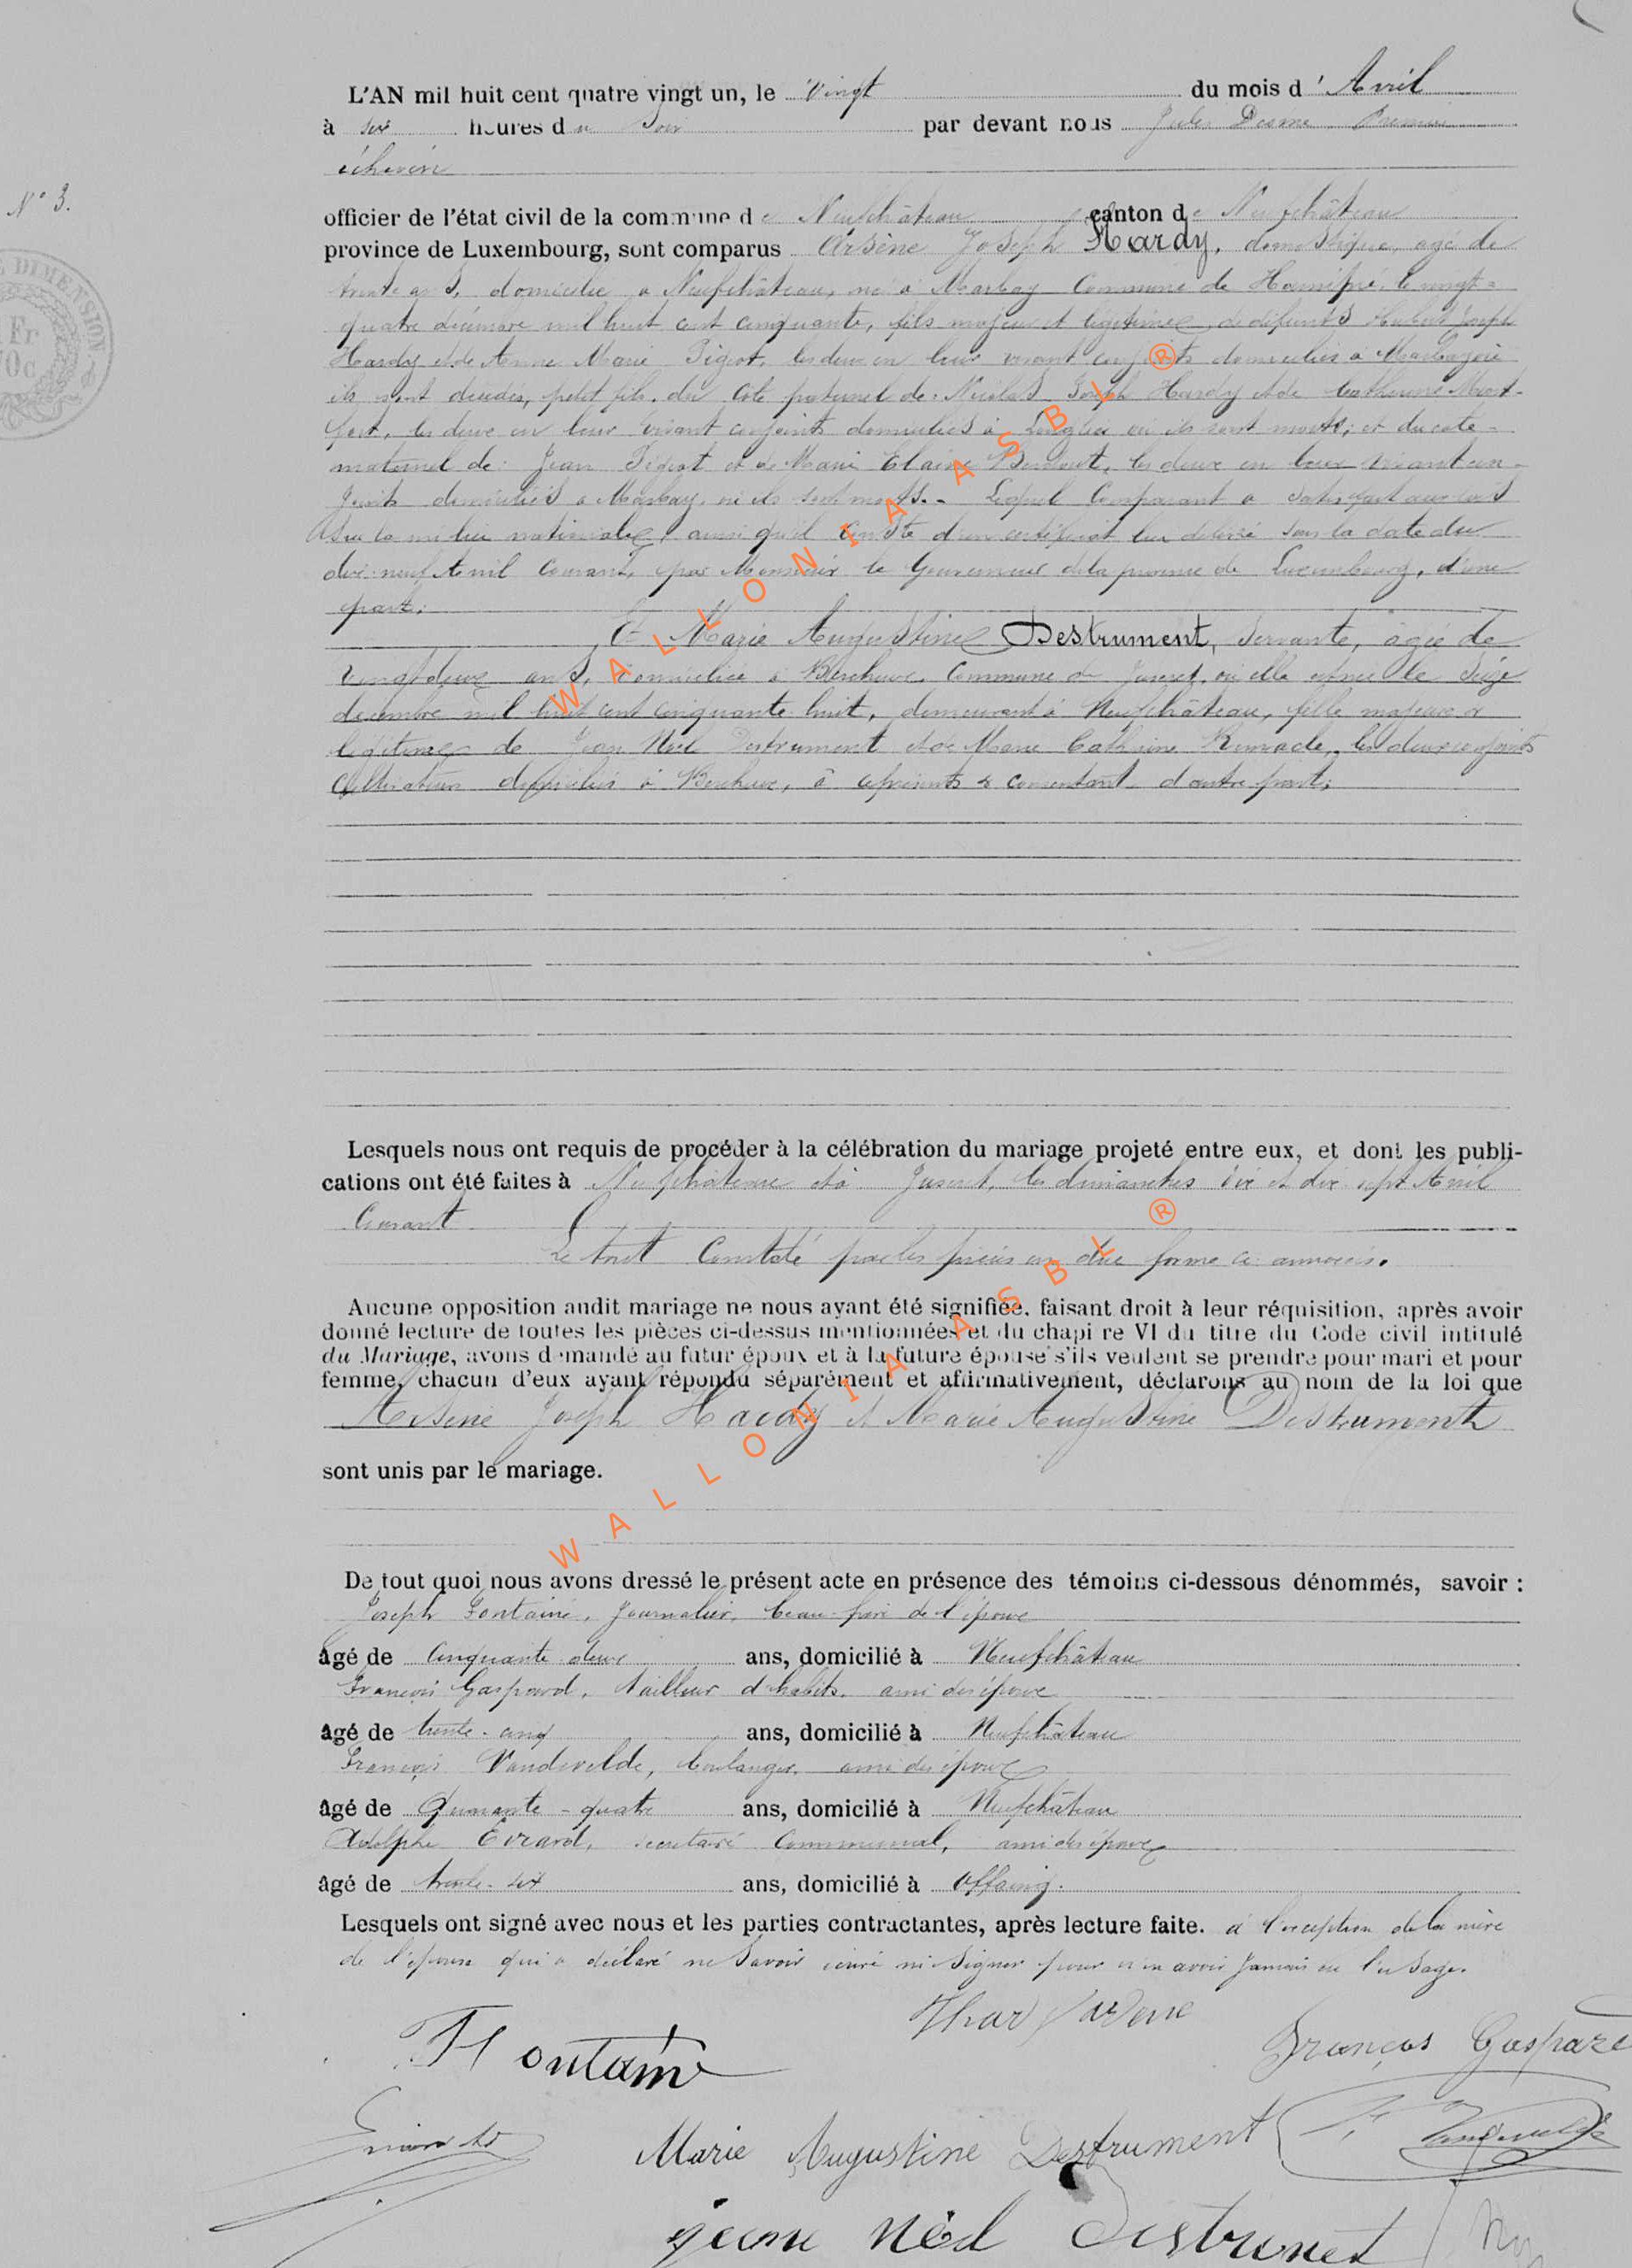 L'AN mil huit cent quatre vingt un, le vingt du mois d' Avril
à six heures du Soir par devant nous Jules Premier
échevin
N° 3.
officier de l'état civil de la commune de Neufchâteau canton de Neufchâteau
province de Luxembourg, sont comparus Arsène Joseph Hardy, domestique, agé de
trente ans, domicilié à Neufchâteau, né à Marbay Commune de Hamipré, le vingt-
quatre décembre mil huit cent cinquante, fils majeur et légitime de défunts Joseph
Hardy et de Anne Marie Pigeot, les deux en leur vivant conjoints domiciliés à Marbay où
ils sont décédés, petit fils, du côté paternel de Nicolas Joseph Hardy et de Catherine Mont-
fort, les deux en leur vivant conjoints domiciliés à Longlier où ils sont morts; et du coté
maternel de Jean Pigeot et de Marie les deux en leur vivant con-
joints domiciliés à Marbay, où ils sont morts.- Lequel Comparant a satisfait aux lois
sur la milice nationale, ainsi qu'il conste d'un certificat lui délivré sous la date du
dix-neuf Avril Courant, par Monsieur le Gouverneur de la province de Luxembourg, d'une
part;
Et Marie Augustine Destrument, Servante, âgée de
vingt deux ans, domiciliée à Bercheux, Commune de Juseret, où elle est née le Seize
décembre mil huit cent cinquante huit, demeurant à Neufchâteau, fille majeure et
légitime de Jean Noël Destrument et de Marie Catherine les deux conjoints
Cultivateurs domiciliés à Bercheux, à ce présents & consentant d'autre part;
Lesquels nous ont requis de procéder à la célébration du mariage projeté entre eux, et dont les publi-
cations ont été faites à Neufchâteau et à Juseret, les dimanches dix et dix sept Avril
Courant
Le tout Constaté par les pièces en due forme ci annexées.
Aucune opposition audit mariage ne nous ayant été signifiée, faisant droit à leur réquisition, après avoir
donné lecture de toutes les pièces ci-dessus mentionnées et du chapitre VI du titre du Code civil intitulé
du Mariage, avons demandé au futur époux et à la future épouse s'ils veulent se prendre pour mari et pour
femme, chacun d'eux ayant répondu séparément et affirmativement, déclarons au nom de la loi que
Arsène Joseph Hardy et Marie Augustine Destrument
sont unis par le mariage.
De tout quoi nous avons dressé le présent acte en présence des témoins ci-dessous dénommés, savoir :
Joseph Fontaine, Journalier, beau-frère de l'épouse
âgé de Cinquante deux ans, domicilié à Neufchâteau
François Gaspard, tailleur d'habits, ami des époux
âgé de trente-cinq ans, domicilié à Neufchâteau
François Vandevelde, boulanger, ami des époux
âgé de Quarante-quatre ans, domicilié à Neufchâteau
Adolphe Evrard, secrétaire Communal, ami des époux
âgé de trente-six ans, domicilié à Offaing.
Lesquels ont signé avec nous et les parties contractantes, après lecture faite. à l'exception de la mère
de l'épouse qui a déclaré ne Savoir écrire ni Signer pour n'en avoir Jamais eu l'usage.
Fontaine
François Gaspard
Marie Augustine Destrument
jean nöel
WALLONIA ASBL ®
WALLONIA ASBL ®